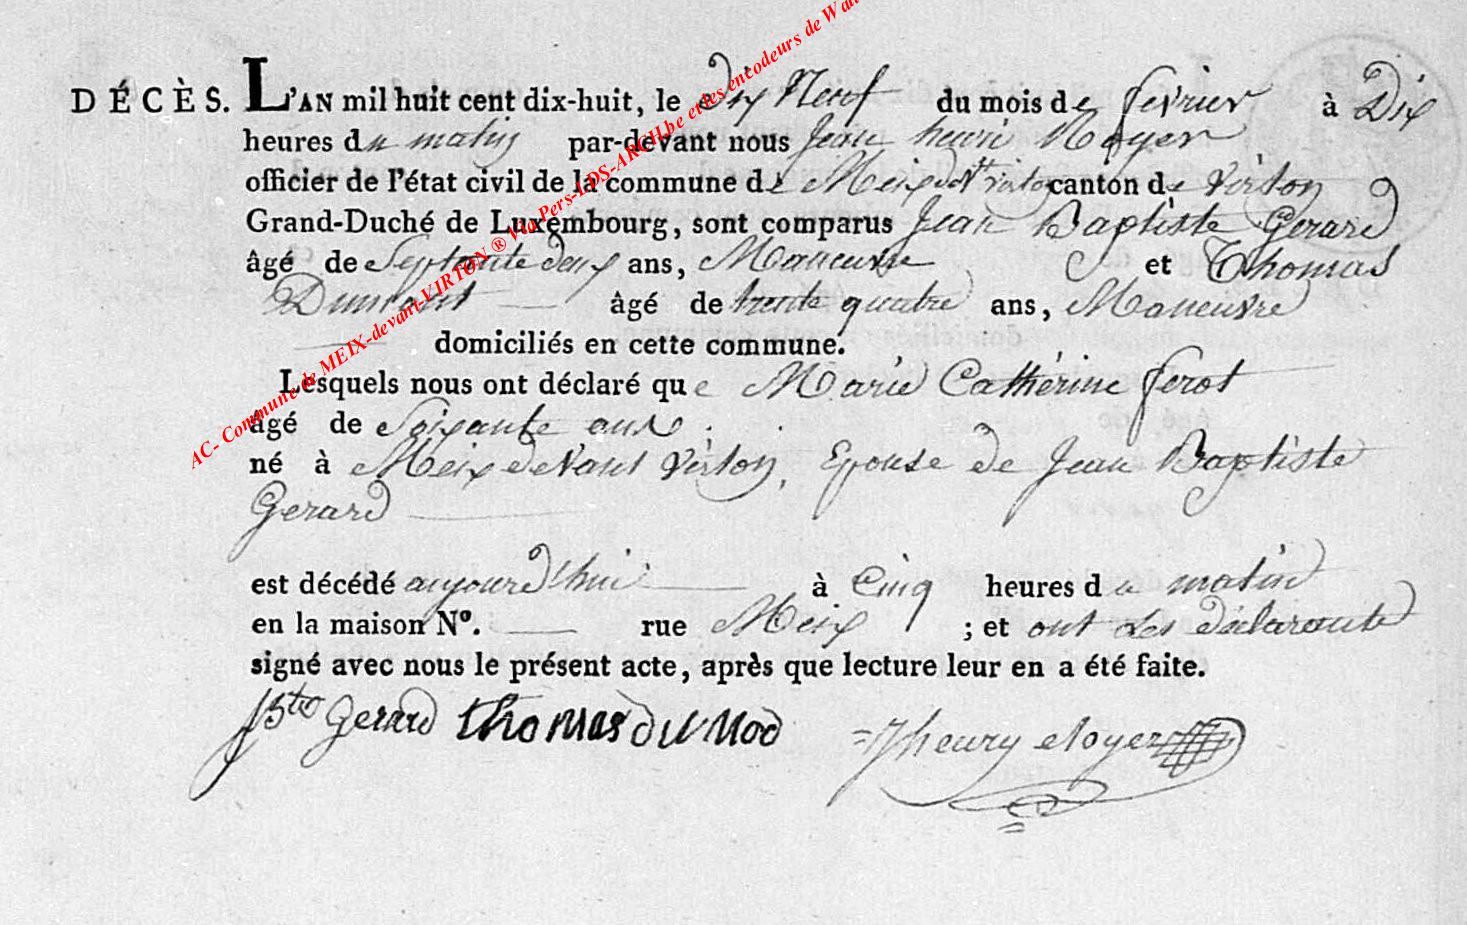 DÉCÈS. L'AN mil huit cent dix-huit, le dix Neuf du mois de fevrier à Dix
heures du matin par-devant nous Jean henri Noyer
officier de l'état civil de la commune de Meix dvt virton canton de virton
Grand-Duché de Luxembourg, sont comparus Jean Baptiste Gerard
âgé de Septante deux ans, Maneuvre et Thomas
âgé de trente quatre ans, Maneuvre
domiciliés en cette commune.
Lesquels nous ont déclaré que Marie Catherine ferot
âgé de Soixante ans
né à Meix devant virton, Epouse de Jean Baptiste
Gerard
est décédé aujourd'hui à Cinq heures du matin
en la maison N°. rue Meix ; et ont Les déclarants
signé avec nous le présent acte, après que lecture leur en a été faite.
JBte Gerard thomas du Mod Jhenry Noyer
AC- Commune de MEIX-devant-VIRTON ® Via Pers-LDS-ARCH.be et les encodeurs de